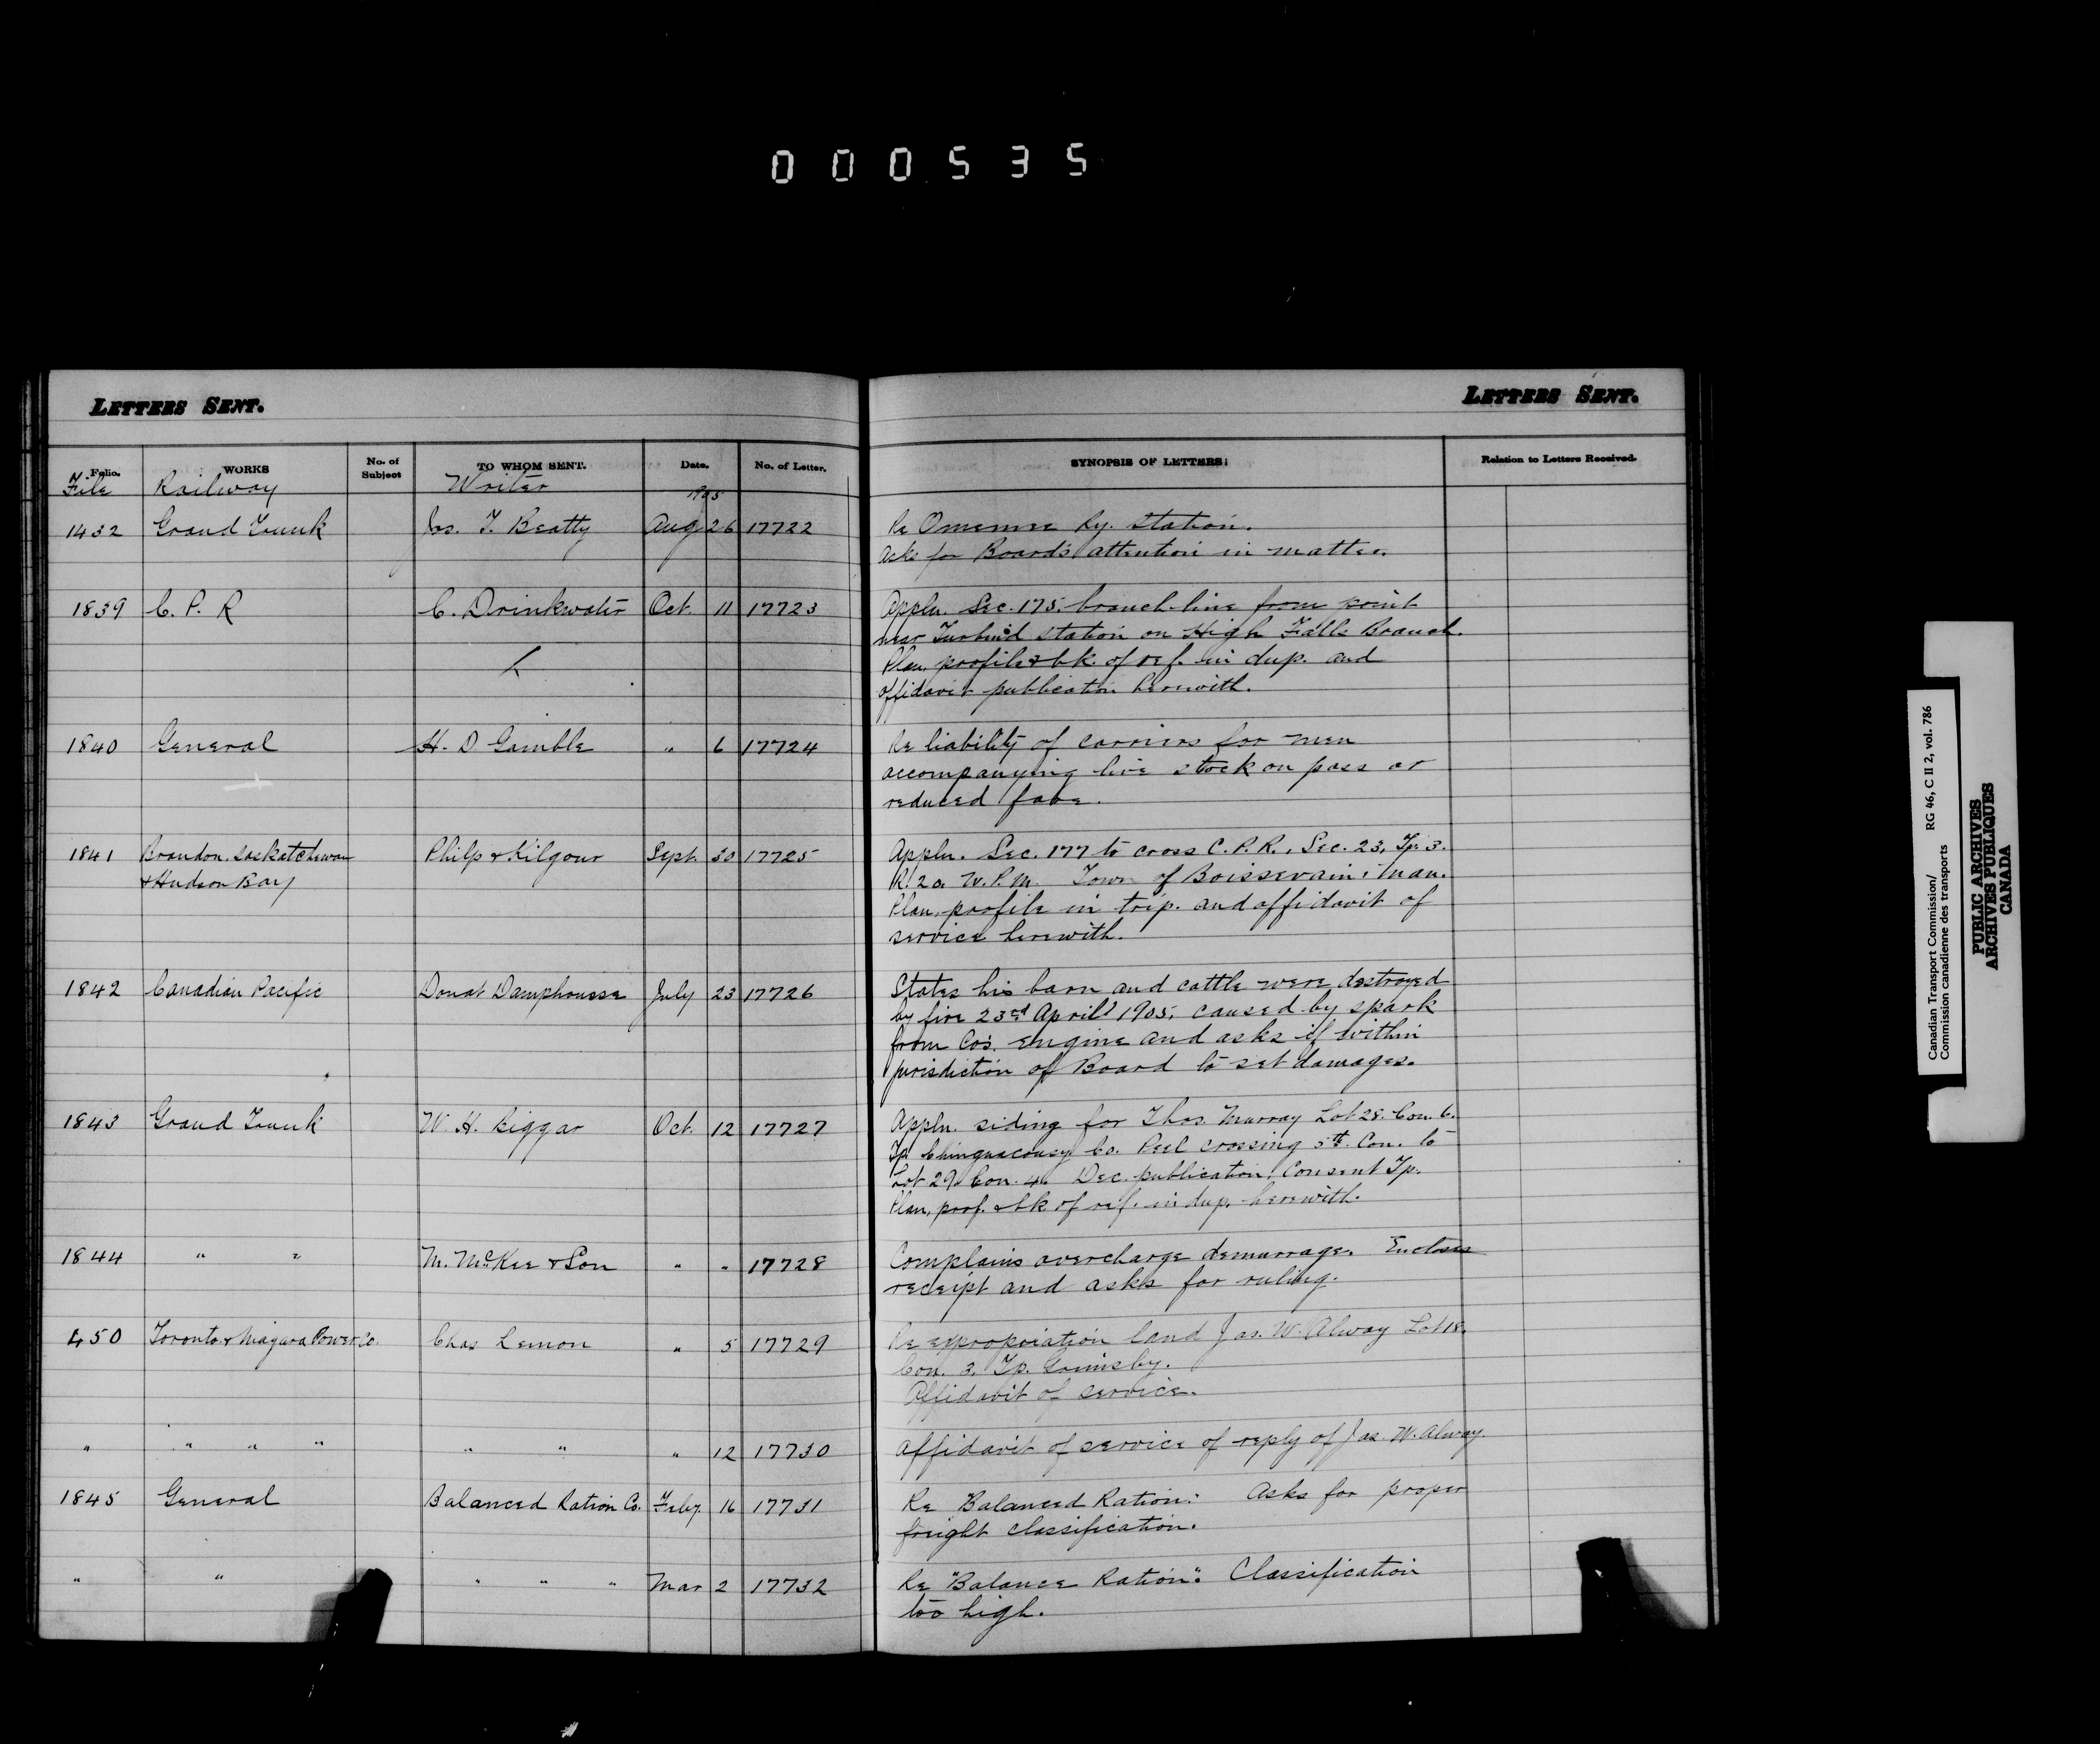 000535
LETTERS SENT.
LETTERS SENT.
Folio. WORKS No. of Subject TO WHOM SENT. Date. No. of Letter. SYNOPSIS OF LETTERS: Relation to Letters Received.
File Railway Writer 1905
1432 Grand Trunk Jos. T. Beatty Aug 26 17722 Re Omemee Ry. Station.
Asks for Board's attention in matter.
1839 C. P. R C. Drinkwater Oct. 11 17723 Appln. Sec. 175. branch line from point
near station on High Falls Branch.
Plan, profile & bk. of ref. in dup. and
affidavit publication herewith.
1840 General H. D. Gamble " 6 17724 Re liability of carriers for men
accompanying live stock on pass or
reduced fare.
1841 Brandon, Saskatchewan Philp & Kilgour Sept. 30 17725 Appln. Sec. 177 to cross C. P. R., Sec. 23, Tp. 3.
& Hudson Bay R. 20. W.P.M. Town of Boissevain, Man.
Plan, profile in trip. and affidavit of
service herewith.
1842 Canadian Pacific Donat Damphousse July 23 17726 States his barn and cattle were destroyed
by fire 23rd April 1905, caused by spark
from Co's. engine and asks if within
jurisdiction of Board to set damages.
1843 Grand Trunk W. H. Biggar Oct. 12 17727 Appln. siding for Thos. Murray Lot 28. Con. 6.
Tp. Chinguacousy Co. Peel crossing 5th. Con. to
Lot 29. Con. 4. Dec. publication, Consent Tp.
Plan, prof. & bk of ref. in dup. herewith.
1844 " " M. McKee & Son " " 17728 Complains overcharge demurrage. Encloses
receipt and asks for ruling.
450 Toronto & Niagara Power Co. Chas Lemon " 5 17729 Re expropriation land Jas. W. Alway Lot 18.
Con. 3. Tp. Grimsby.
Affidavit of service.
" " " " " " " 12 17730 Affidavit of service of reply of Jas. W. Alway.
1845 General Balanced Ration Co. Feby. 16 17731 Re "Balanced Ration". Asks for proper
freight classification.
" " " " " Mar 2 17732 Re "Balance Ration". Classification
too high.
Canadian Transport Commission/ RG 46, C II 2, vol. 786
Commission canadienne des transports
PUBLIC ARCHIVES
ARCHIVES PUBLIQUES
CANADA